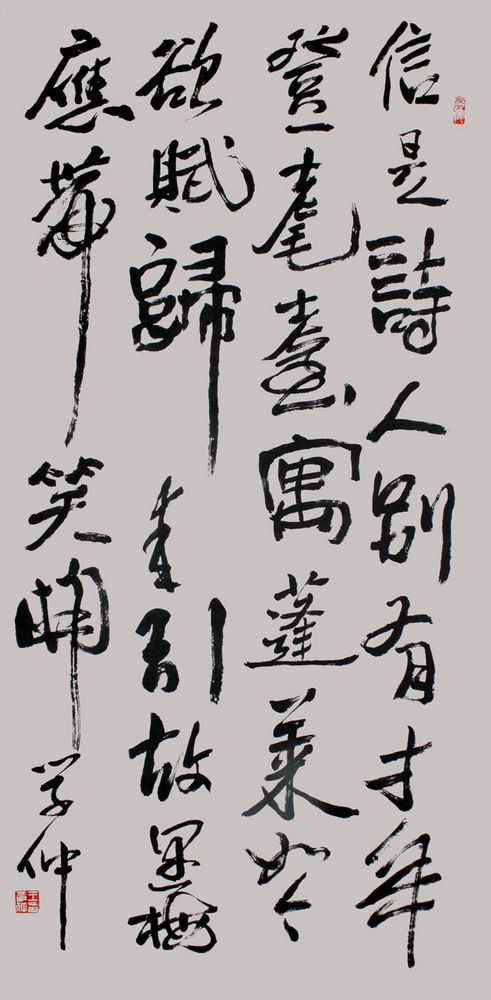 信是詩人別有才年
登耄耋寓蓬萊如今
欲賦歸來引故梅
應帶笑開
学仲